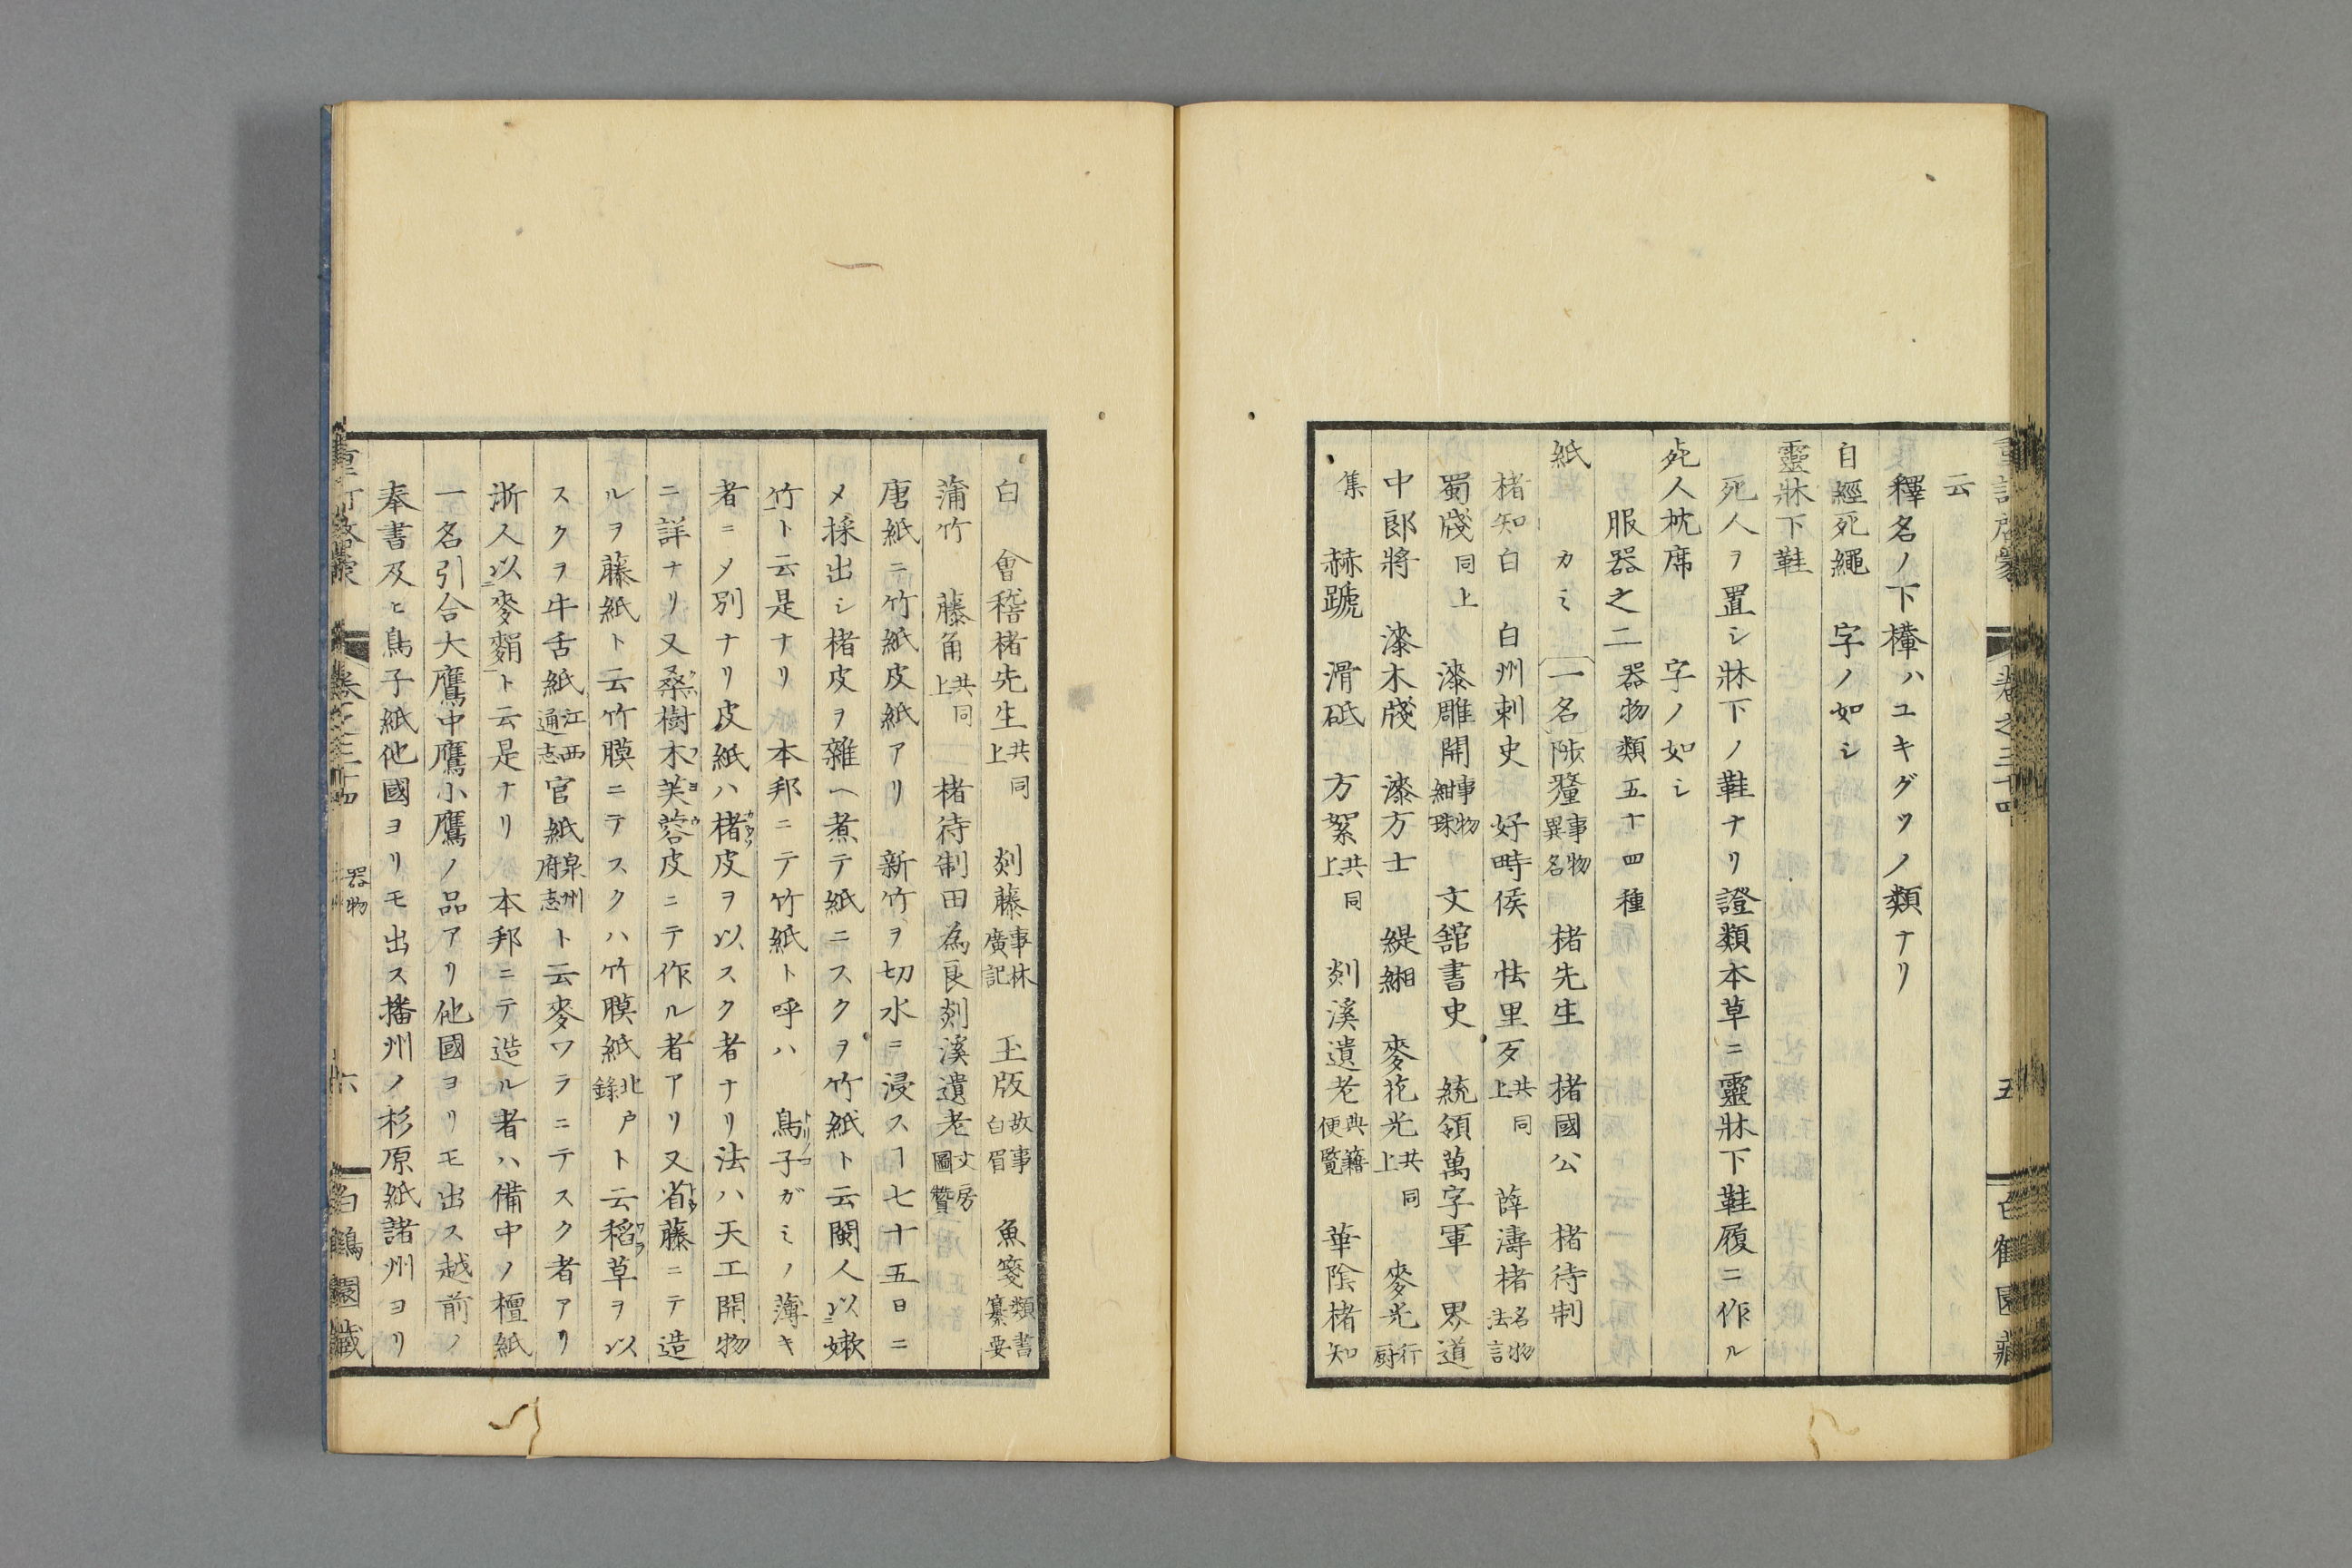 云
釋名ノ下樺ハユキグツノ類ナリ
自經死繩　字ノ如シ
靈牀下鞋
死人ヲ置シ牀下ノ鞋ナリ證類本草ニ靈牀下鞋履ニ作ル
死人枕席　字ノ如シ
服器之二器物類五十四種
紙　カミ　一名陟釐事物異名　楮先生　楮國公　楮待制
楮知白　白州刺史　好畤侯　怯里歹共同上　薛濤楮名物法言
蜀牋同上　漆雕開事物紺珠　文舘書史　統領萬字軍　界道
中郎將　漆木牋　漆方士　緹緗　麥花光共同上　麥光行厨
集　赫蹏　滑砥　方絮共同上　剡溪遺老典籍便覧　華陰楮知
白　會稽楮先生共同上　剡藤事林廣記　玉版故事白眉　魚箋類書纂要
蒲竹　藤角共同上　楮待制田為良剡溪遺老文房圖贊
唐紙ニ竹紙皮紙アリ　新竹ヲ切水ニ浸スヿ七十五日ニ
メ採出シ楮皮ヲ雜ヘ煮テ紙ニスクヲ竹紙ト云閩人以嫩
竹ト云是ナリ　本邦ニテ竹紙ト呼ハ　鳥子ガミノ薄キ
者ニメ別ナリ皮紙ハ楮皮ヲ以スク者ナリ法ハ天工開物
ニ詳ナリ又桑樹木芙蓉皮ニテ作ル者アリ又省藤ニテ造
ルヲ藤紙ト云竹膜ニテスクハ竹膜紙北戸錄ト云稻草ヲ以
スクヲ牛舌紙江西通志官紙泉州府志ト云麥ワラニテスク者アリ
浙人以麥䴬ト云是ナリ　本邦ニテ造ル者ハ備中ノ檀紙
一名引合大鷹中鷹小鷹ノ品アリ他國ヨリモ出ス越前ノ
奉書及ヒ鳥子紙他國ヨリモ出ス播州ノ杉原紙諸州ヨリ
卷之三十四　器物　六